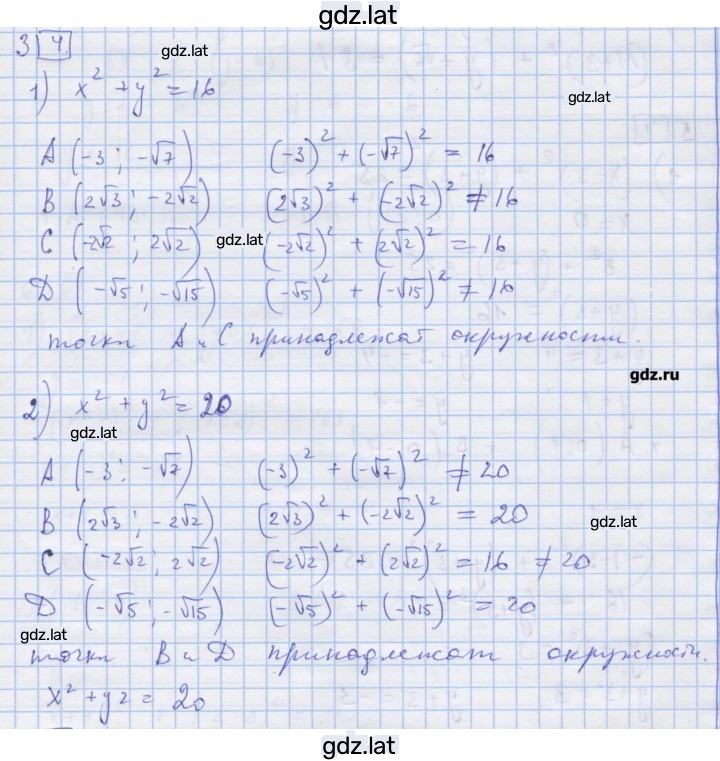 gdz.lat
3 4.
gdz.lat
1) x² + y² = 16
gdz.lat
A (-3 ; -√7) (-3)² + (-√7)² = 16
B (2√3 ; -2√2) (2√3)² + (-2√2)² ≠ 16
C (-2√2 ; 2√2) gdz.lat (-2√2)² + (2√2)² = 16
D (-√5 ; -√15) (-√5)² + (-√15)² ≠ 16
точки A и C принадлежат окружности.
gdz.ru
2) x² + y² = 20
gdz.lat
A (-3 ; -√7) (-3)² + (-√7)² ≠ 20
B (2√3 ; -2√2) (2√3)² + (-2√2)² = 20
gdz.lat
C (-2√2 ; 2√2) (-2√2)² + (2√2)² = 16 ≠ 20
D (-√5 ; -√15) (-√5)² + (-√15)² = 20
gdz.lat
точки B и D принадлежат окружности.
x² + y2 = 20
gdz.lat